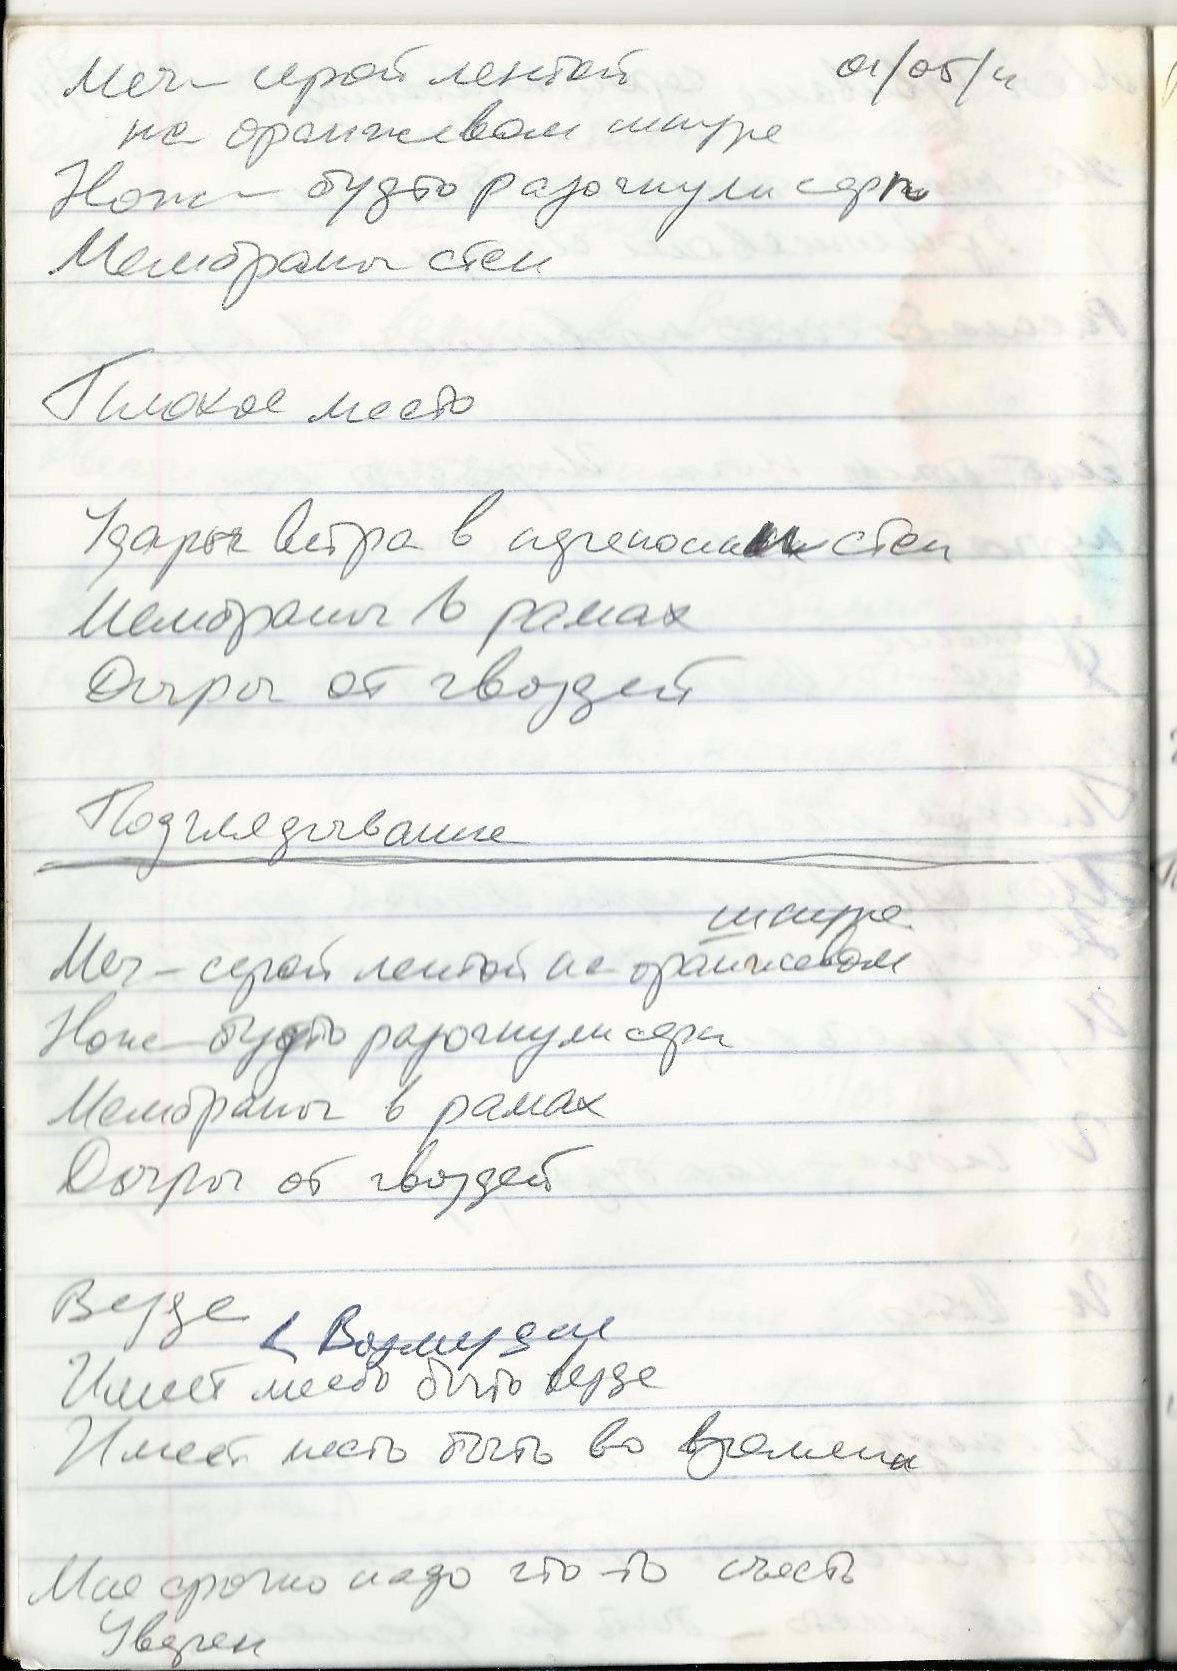 Меч – серой лентой 01/05/11
на оранжевом шнуре
Нож – будто разогнули серп
Мембраны стен
Плохое место
Удары ветра в стен
Мембраны в рамах
Дыры от гвоздей
Подглядывание
шнуре
Меч – серой лентой на оранжевом
Нож – будто разогнули серп
Мембраны в рамах
Дыры от гвоздей
Везде
Имеет место быть везде
Имеет место быть во времени
Мне срочно надо что-то съесть
Уверен